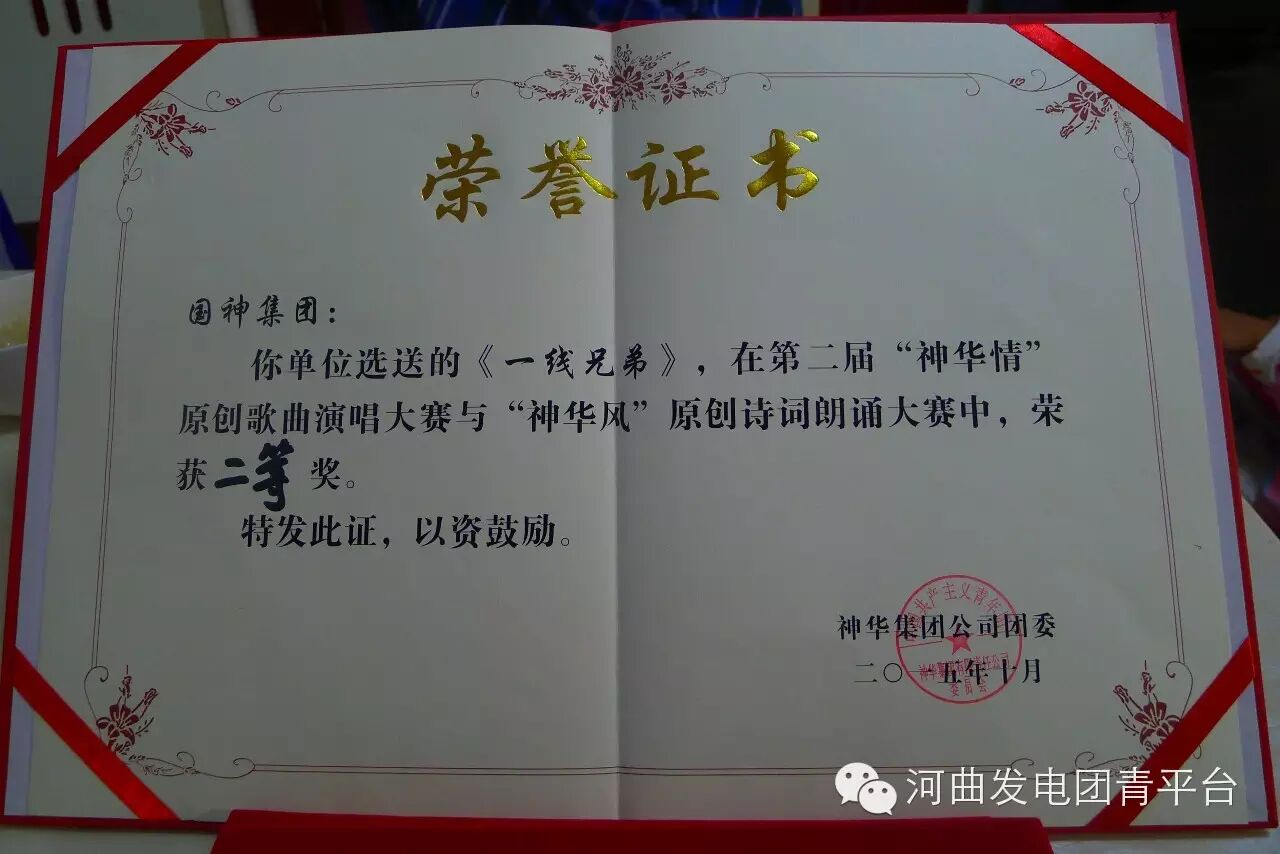 荣誉证书
国神集团：
你单位选送的《一线兄弟》，在第二届“神华情”
原创歌曲演唱大赛与“神华风”原创诗词朗诵大赛中，荣
获二等奖。
特发此证，以资鼓励。
共产主义青年
神华集团公司团委
神华集团有限责任公司
二〇一五年十月
委员会
河曲发电团青平台